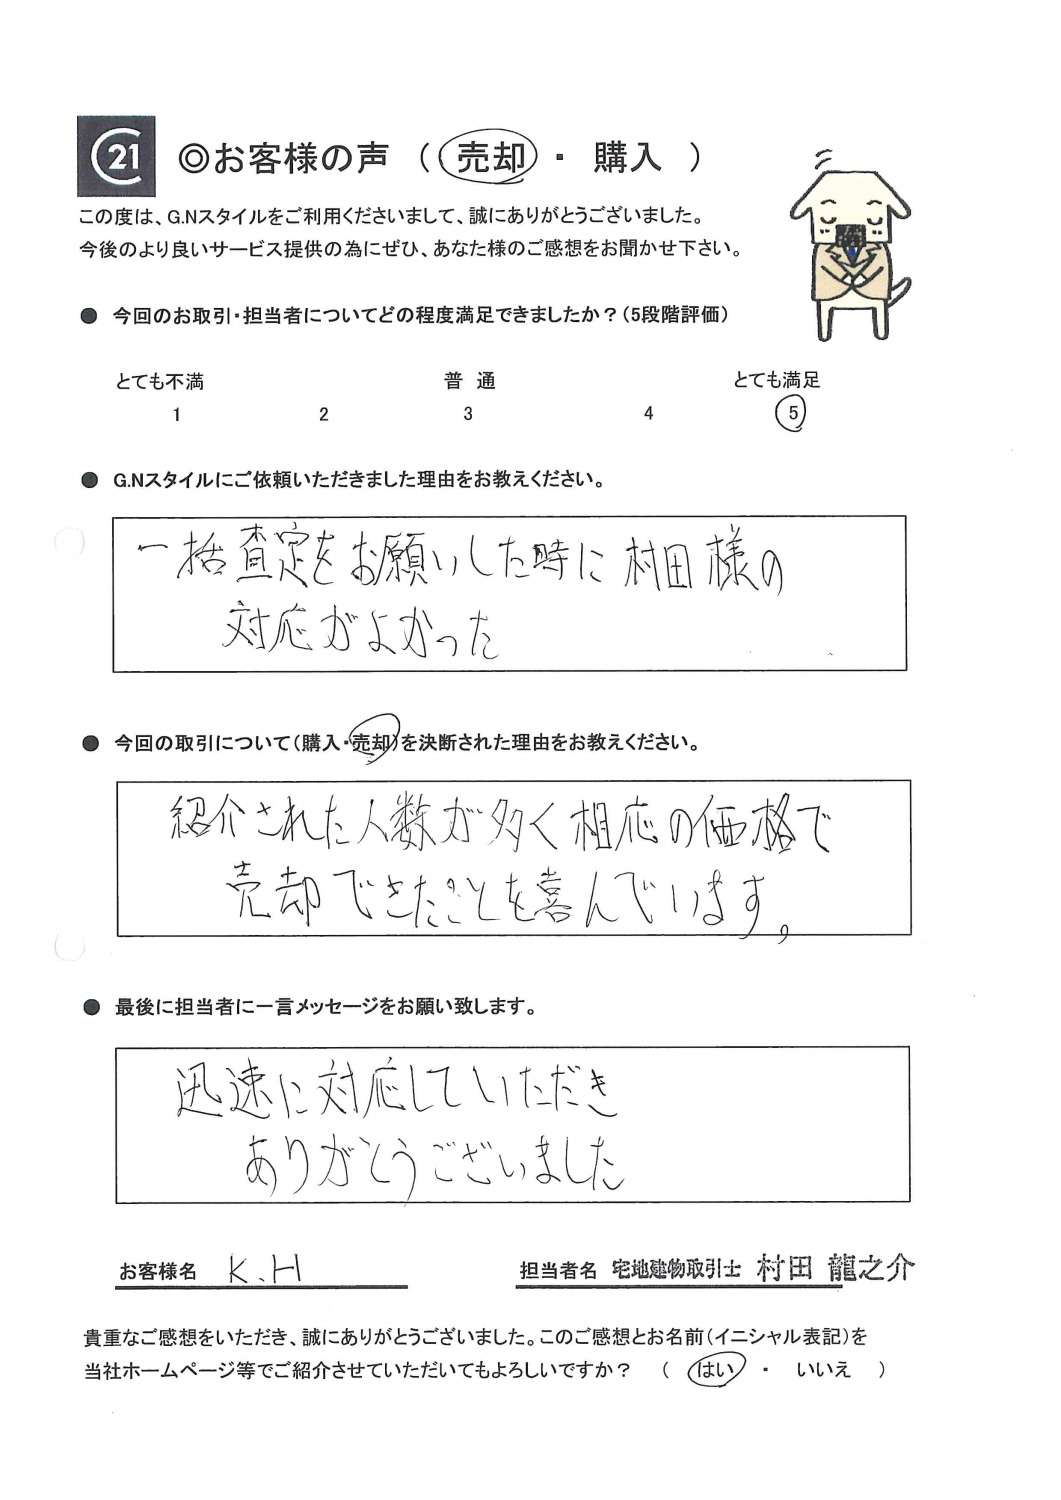 C21
◎お客様の声 （ 売却 ・ 購入 ）
この度は、G.Nスタイルをご利用くださいまして、誠にありがとうございました。
今後のより良いサービス提供の為にぜひ、あなた様のご感想をお聞かせ下さい。
● 今回のお取引・担当者についてどの程度満足できましたか？（5段階評価）
とても不満 普 通 とても満足
1 2 3 4 5
● G.Nスタイルにご依頼いただきました理由をお教えください。
一括査定をお願いした時に村田様の
対応がよかった
● 今回の取引について（購入・売却）を決断された理由をお教えください。
紹介された人数が多く相応の価格で
売却できたことを喜んでいます。
● 最後に担当者に一言メッセージをお願い致します。
迅速に対応していただき
ありがとうございました
お客様名 K.H 担当者名 宅地建物取引士 村田 龍之介
貴重なご感想をいただき、誠にありがとうございました。このご感想とお名前（イニシャル表記）を
当社ホームページ等でご紹介させていただいてもよろしいですか？ （ はい ・ いいえ ）